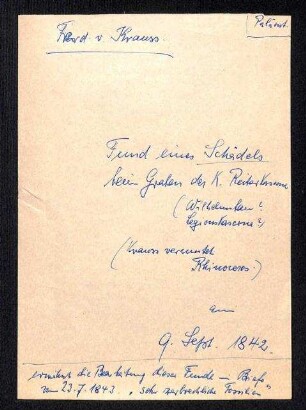 Paläont.
Ferd. v. Krauss.
Fund eines Schädels
beim Graben der K. Reiterkaserne
(Wilhelmsplatz?
Legionskaserne?)
(Krauss vermutet
Rhinoceros.)
am
9. Sept. 1842.
erwähnt die Bearbeitung dieses Fundes im Brief
vom 23.7.1843 "sehr zerbrechliche Fossilien"